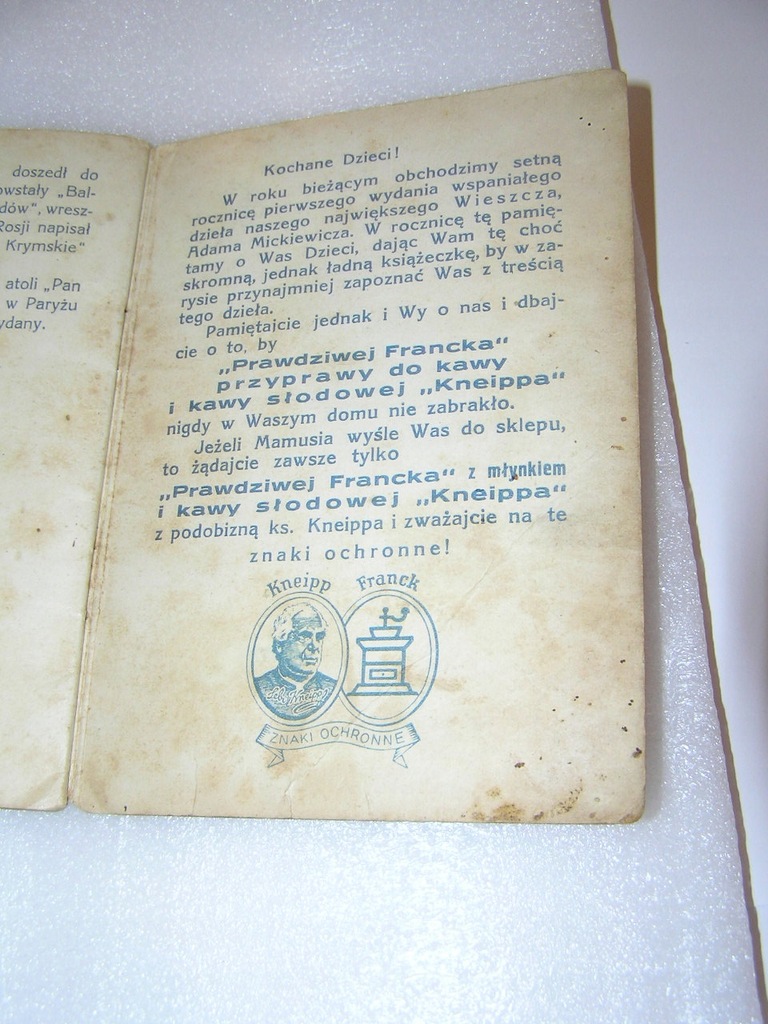 doszedł do
„Bal-
wresz-
Rosji napisał
Krymskie"
atoli „Pan
w Paryżu
Kochane Dzieci!
W roku bieżącym obchodzimy setną
rocznicę pierwszego wydania wspaniałego
dzieła naszego największego Wieszcza,
Adama Mickiewicza. W rocznicę tę pamię-
tamy o Was Dzieci, dając Wam tę choć
skromną, jednak ładną książeczkę, by w za-
rysie przynajmniej zapoznać Was z treścią
tego dzieła.
Pamiętajcie jednak i Wy o nas i dbaj-
cie o to, by
„Prawdziwej Francka"
przyprawy do kawy
i kawy słodowej „Kneippa"
nigdy w Waszym domu nie zabrakło.
Jeżeli Mamusia wyśle Was do sklepu,
to żądajcie zawsze tylko
„Prawdziwej Francka" z młynkiem
i kawy słodowej „Kneippa"
z podobizną ks. Kneippa i zważajcie na te
znaki ochronne!
Kneipp Franck
Seb. Kneipp
ZNAKI OCHRONNE